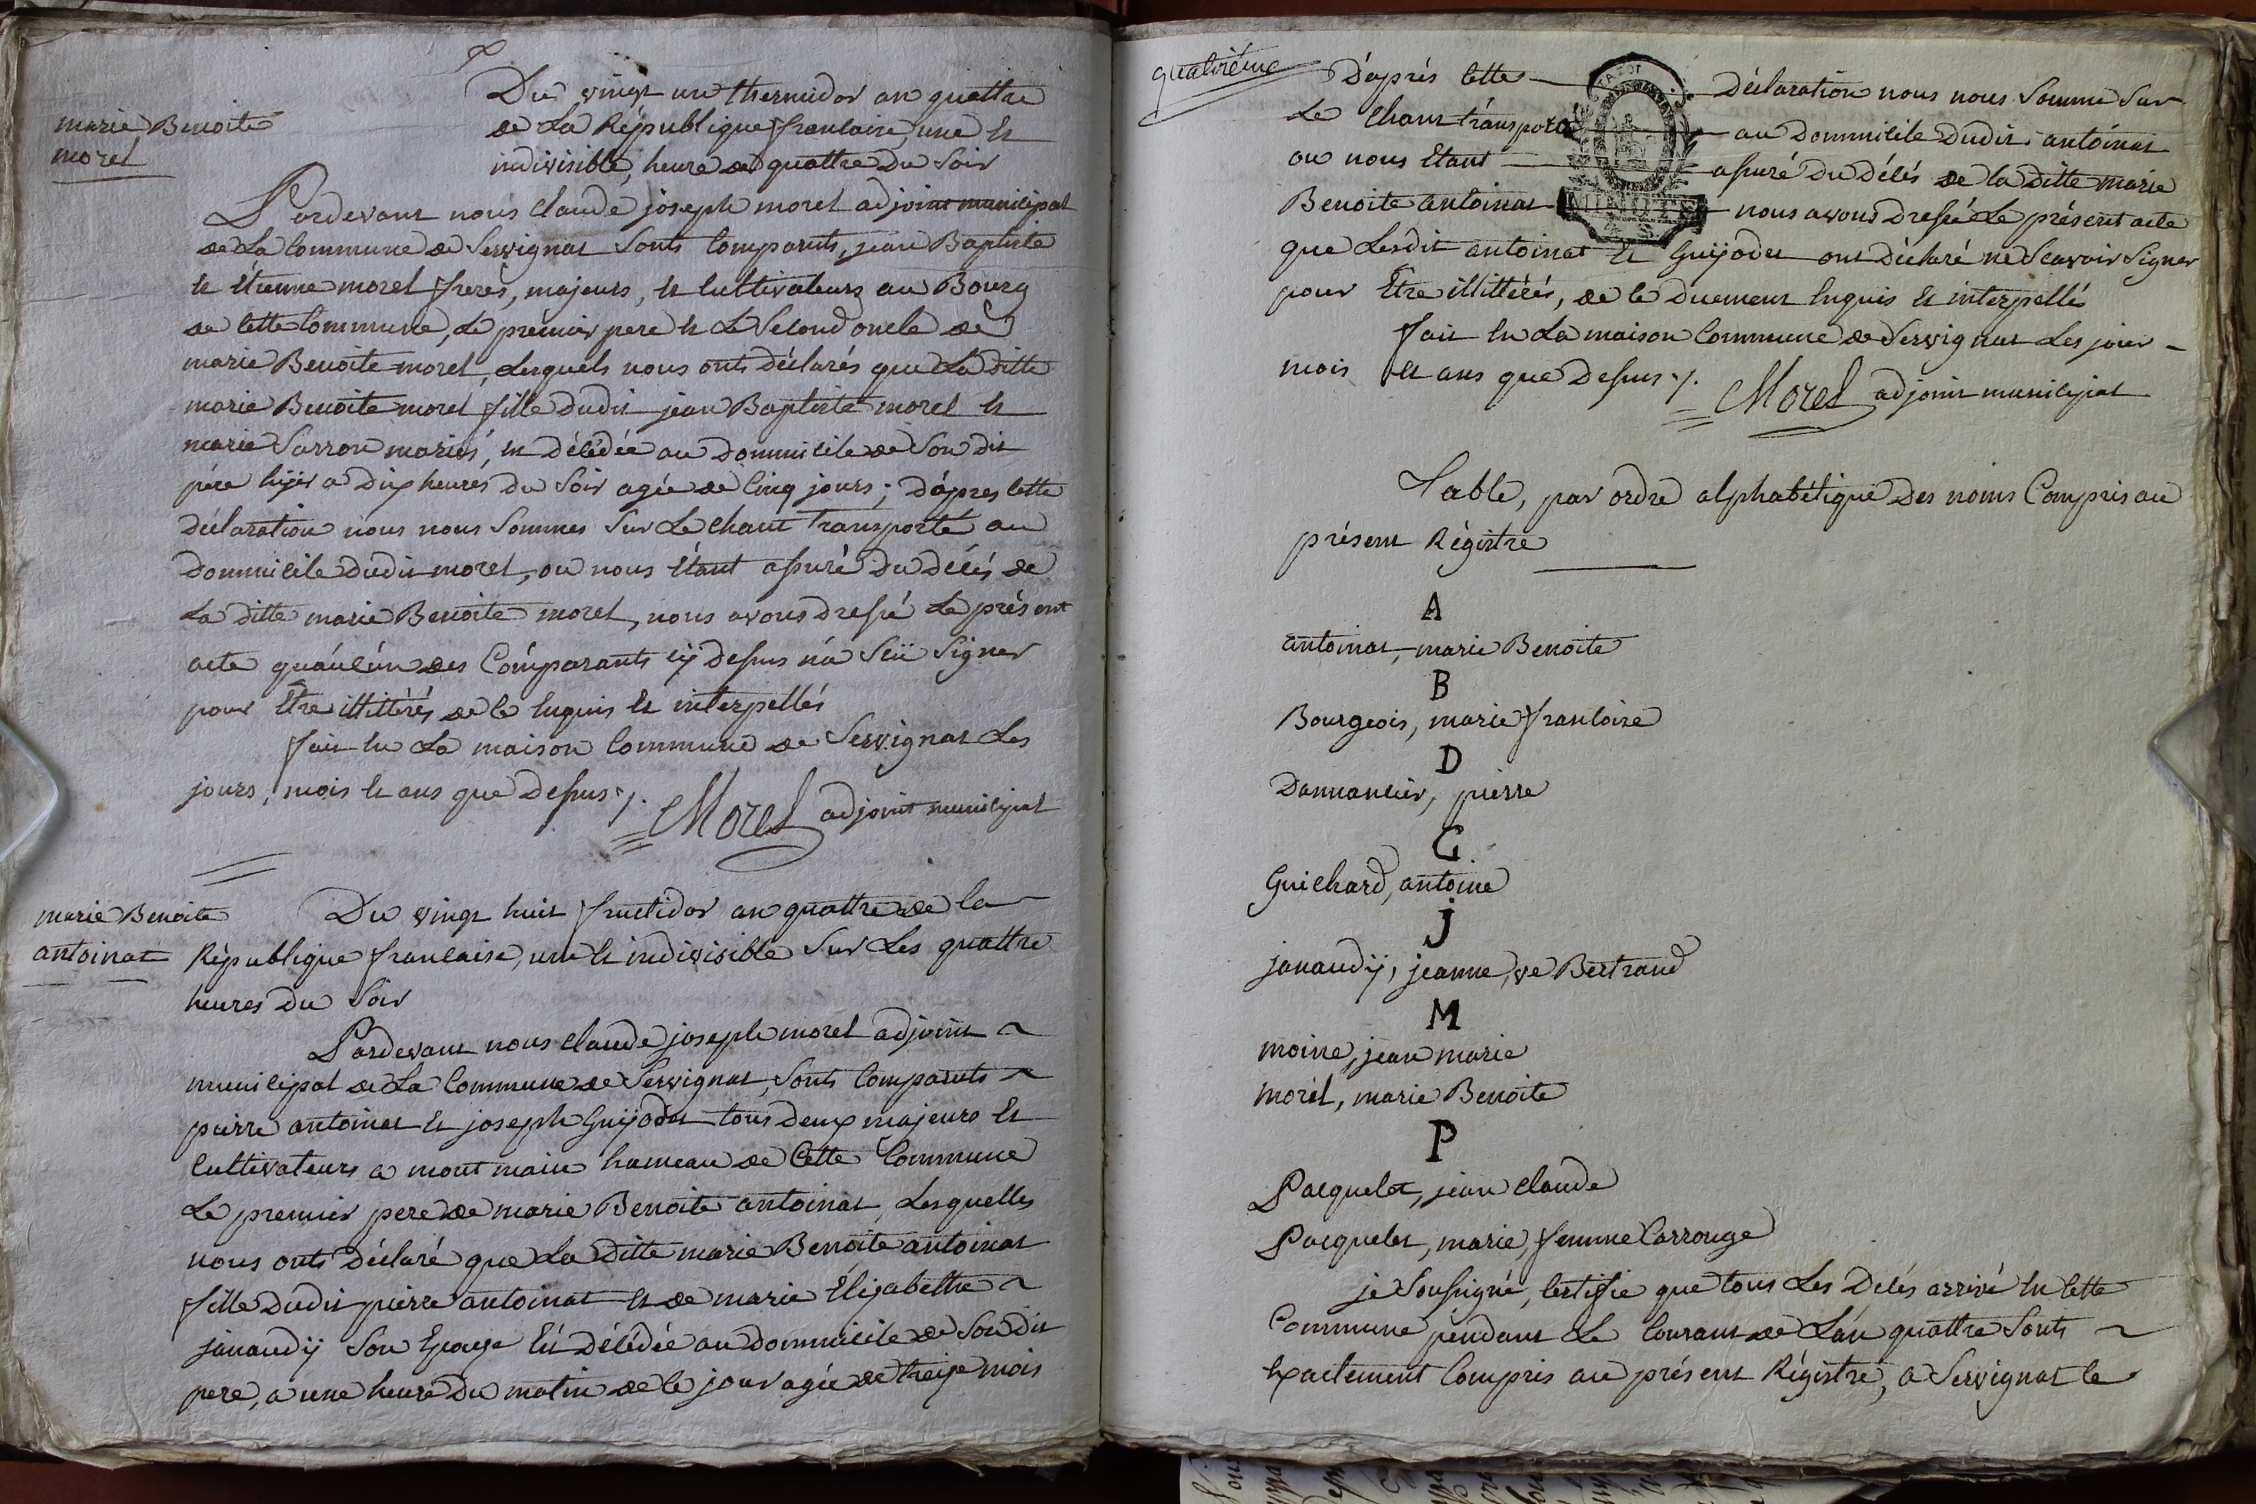 marie Benoite
morel
Du vingt un thermidor an quattre
de La République francaise, une et
indivisible, heure de quattre du soir
Pardevant nous claude joseph morel adjoint municipal
de La Commune de Servignat sonts Comparuts, jean Baptiste
et Etienne morel freres, majeurs, et Cultivateurs au Bourg
de Cette Commune, Le prémier pere et Le Second oncle de
marie Benoite morel, Lesquels nous onts déclarés que La ditte
marie Benoite morel fille dudit jean Baptiste morel et
marie Sarron mariés, et décédée au dommicile de Son dit
pére hijer a dix heures du Soir agée de Cinq jours; d'apres Cette
déclaration nous nous Sommes Sur Le chant Transporté au
dommicile dudit morel, ou nous étant assuré du décés de
La ditte marie Benoite morel, nous avons dressé Le présent
acte qu'aucún des Comparants cÿ dessus n'a Seü Signer
pour Etre illittérés de ce Enquis et interpellés
fait En La maison Commune de Servignat Les
jours, mois et ans que dessus ·/.
Morel adjoint municipal
marie Benoite
antoinat
Du vingt huit fructidor an quattre de la
République francaise, une et indivisible Sur Les quattre
heures du Soir
Pardevant nous claude joseph morel adjoint
municipal de La Commune de Servignat, Sonts Comparuts
pierre antoinat et joseph Guijodet tous deux majeurs et
Cultivateurs a mont main hameau de Cette Commune
Le premier pere de marie Benoite antoinat, Lesquelles
nous onts déclaré que La ditte marie Benoite antoinat
fille dudit pierre antoinat et de marie Elizabethe
janaudÿ Son Epouze Est décédée au dommicile de Son dit
pere, a une heure du matin de ce jour agée de treize mois
quatriéme
D'aprés Cette déclaration nous nous Somme Sur
Le Chant tránsporté au dommicile dudit antoinat
ou nous Etant assuré du décés de la ditte marie
Benoite antoinat nous avons dressé Le présent acte
MINUTE
que Lesdit antoinat et Guijodet ont déclaré ne Scavoir Signer
pour Etre illittérés, de ce duement Enquis et interpellés
fait En La maison Commune de Servignat Les jour
mois et ans que dessus ·/.
Morel adjoint municipal
Table, par ordre alphabétique des noms Compris au
présent Régistre
A
antoinat, marie Benoite
B
Bourgeois, marie francoise
D
Dannancier, pierre
G
Guichard, antoine
J
janaudÿ, jeanne, ve Bertrand
M
moine, jean marie
morél, marie Benoite
P
Pacquelet, jean claude
Pacquelet, marie, femme Carrouge
je Soussigné, Certifie que tous Les Décés arrivé En Cette
Commune pendant Le Courant de L'an quattre Sonts
Exactement Compris au présent Régistre, a Servignat le